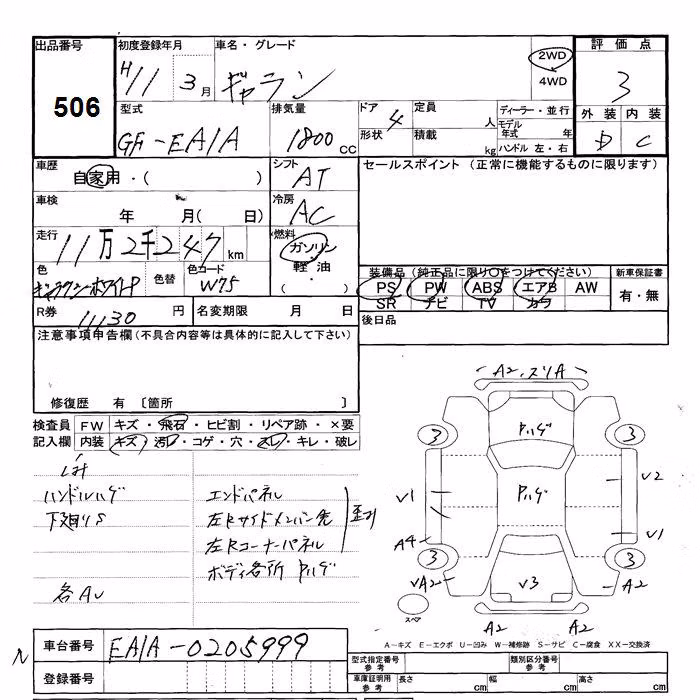 出品番号 初度登録年月 車名・グレード 2WD 4WD 評価点
506 H11 3月 ギャラン 3
型式 排気量 ドア 定員 人 ディーラー・並行 外装 内装
GF-EA1A 1800cc 4 形状 積載 kg モデル年式 年 ハンドル 左・右 D C
車歴 自家用・( ) シフト AT セールスポイント (正常に機能するものに限ります)
車検 年 月( 日) 冷房 AC
走行 11万2千247km 燃料 ガソリン・軽油・( )
色 色替 色コード W75
装備品(純正品に限り○をつけてください) 新車保証書
PS PW ABS エアB AW 有・無
SR ナビ TV カワ
R券 11130円 名変期限 月 日 後日品
注意事項申告欄(不具合内容等は具体的に記入して下さい)
修復歴 有 〔箇所 〕
検査員 FW キズ・飛石・ヒビ割・リペア跡・×要
記入欄 内装 キズ・汚レ・コゲ・穴・スレ・キレ・破レ
ハンドルハゲ エンドパネル
下廻りS 左Rサイドメンバー先
左Rコーナーパネル
ボディ各所 Pハゲ
各AU
A2,スリA
3 Pハゲ 3
V1 Pハゲ V2
A4 V1
3 3
VA2 V3 A2
スペア
A2 A2
A-キズ E-エクボ U-凹み W-補修跡 S-サビ C-腐食 XX-交換済
N 車台番号 EA1A-0205999
登録番号
型式指定番号 参考 類別区分番号 参考
車庫証明用 参考 長さ cm 幅 cm 高さ cm